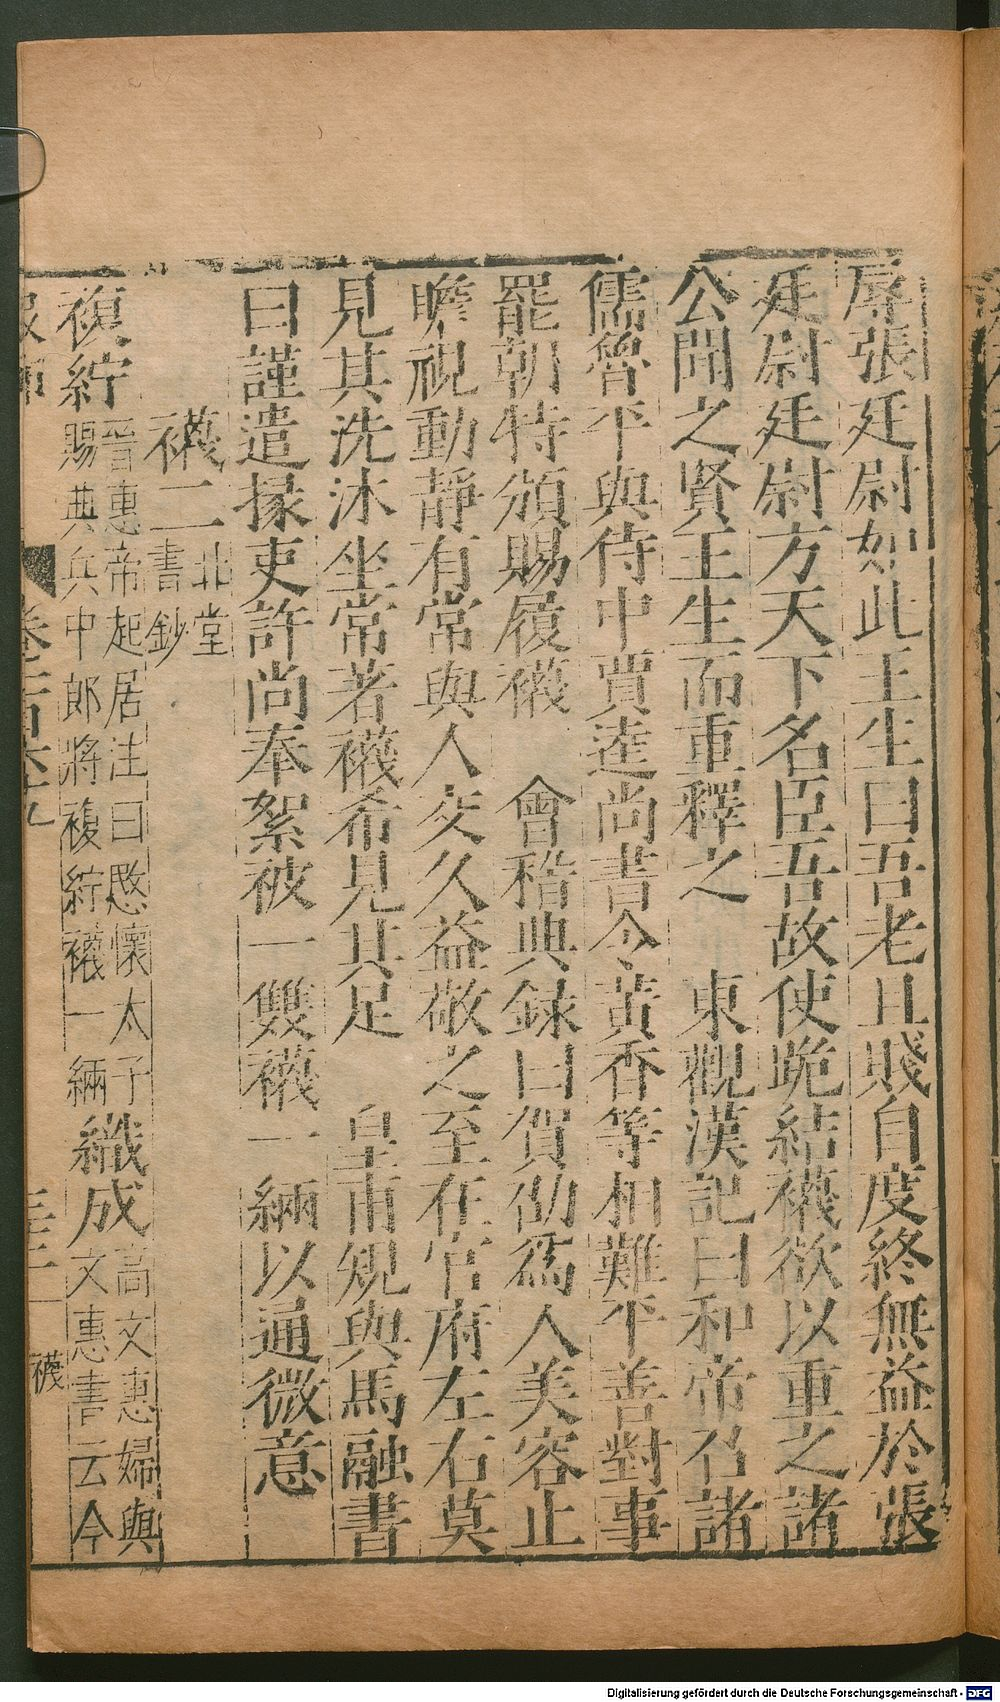 辱張廷尉如此王生曰吾老且賤自度終無益於張
廷尉廷尉方天下名臣吾故使跪結襪欲以重之諸
公聞之賢王生而重釋之　東觀漢記曰和帝召諸
儒魯平與侍中賈逵尚書令黃香等相難平善對事
罷朝特頒賜履襪　會稽典錄曰賀劭爲人美容止
瞻視動靜有常與人交久益敬之至在官府左右莫
見其洗沐坐常著襪希見其足　皇甫規與馬融書
曰謹遣掾吏許尚奉絮被一雙襪一緉以通微意
襪二北堂書鈔
複紵晉惠帝起居注曰愍懷太子賜典兵中郎將複紵襪一緉織成高文惠婦與文惠書云今
卷二百六十九　襪
Digitalisierung gefördert durch die Deutsche Forschungsgemeinschaft - DFG